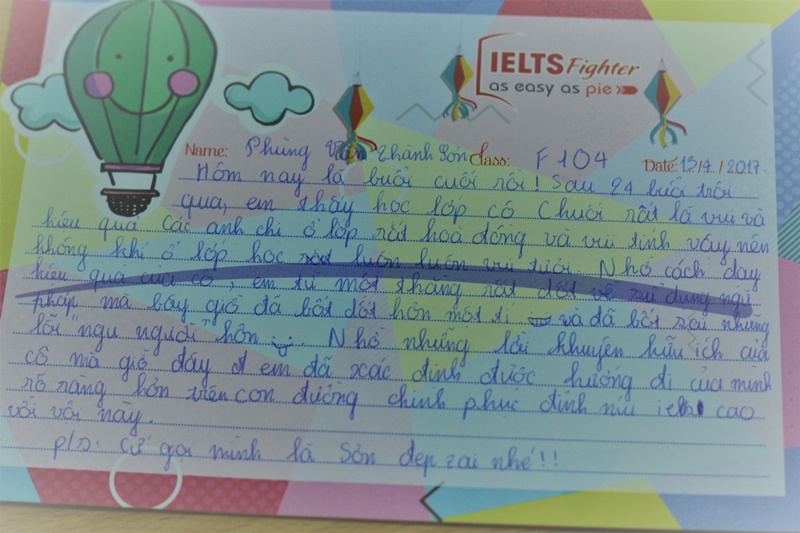 IELTS Fighter
as easy as pie
Name: Phùng Văn Thành Sơn Class: F104 Date: 13/4/2017
Hôm nay là buổi cuối rồi! Sau 24 buổi trôi
qua, em thấy học lớp cô Chuối rất là vui và
hiệu quả. Các anh chị ở lớp rất hoà đồng và vui tính vậy nên
không khí ở lớp học luôn luôn vui tươi. Nhờ cách dạy
hiệu quả của cô, em từ một thằng rất dốt về sử dụng ngữ
pháp mà bây giờ đã bớt dốt hơn một tí và đã bớt sai những
lỗi "ngu người" hơn. Nhờ những lời khuyên hữu ích của
cô mà giờ đây đ em đã xác định được hướng đi của mình
rõ ràng hơn trên con đường chinh phục đỉnh núi ielts cao
vời vợi này.
p/s: Cứ gọi mình là Sơn đẹp zai nhé!!